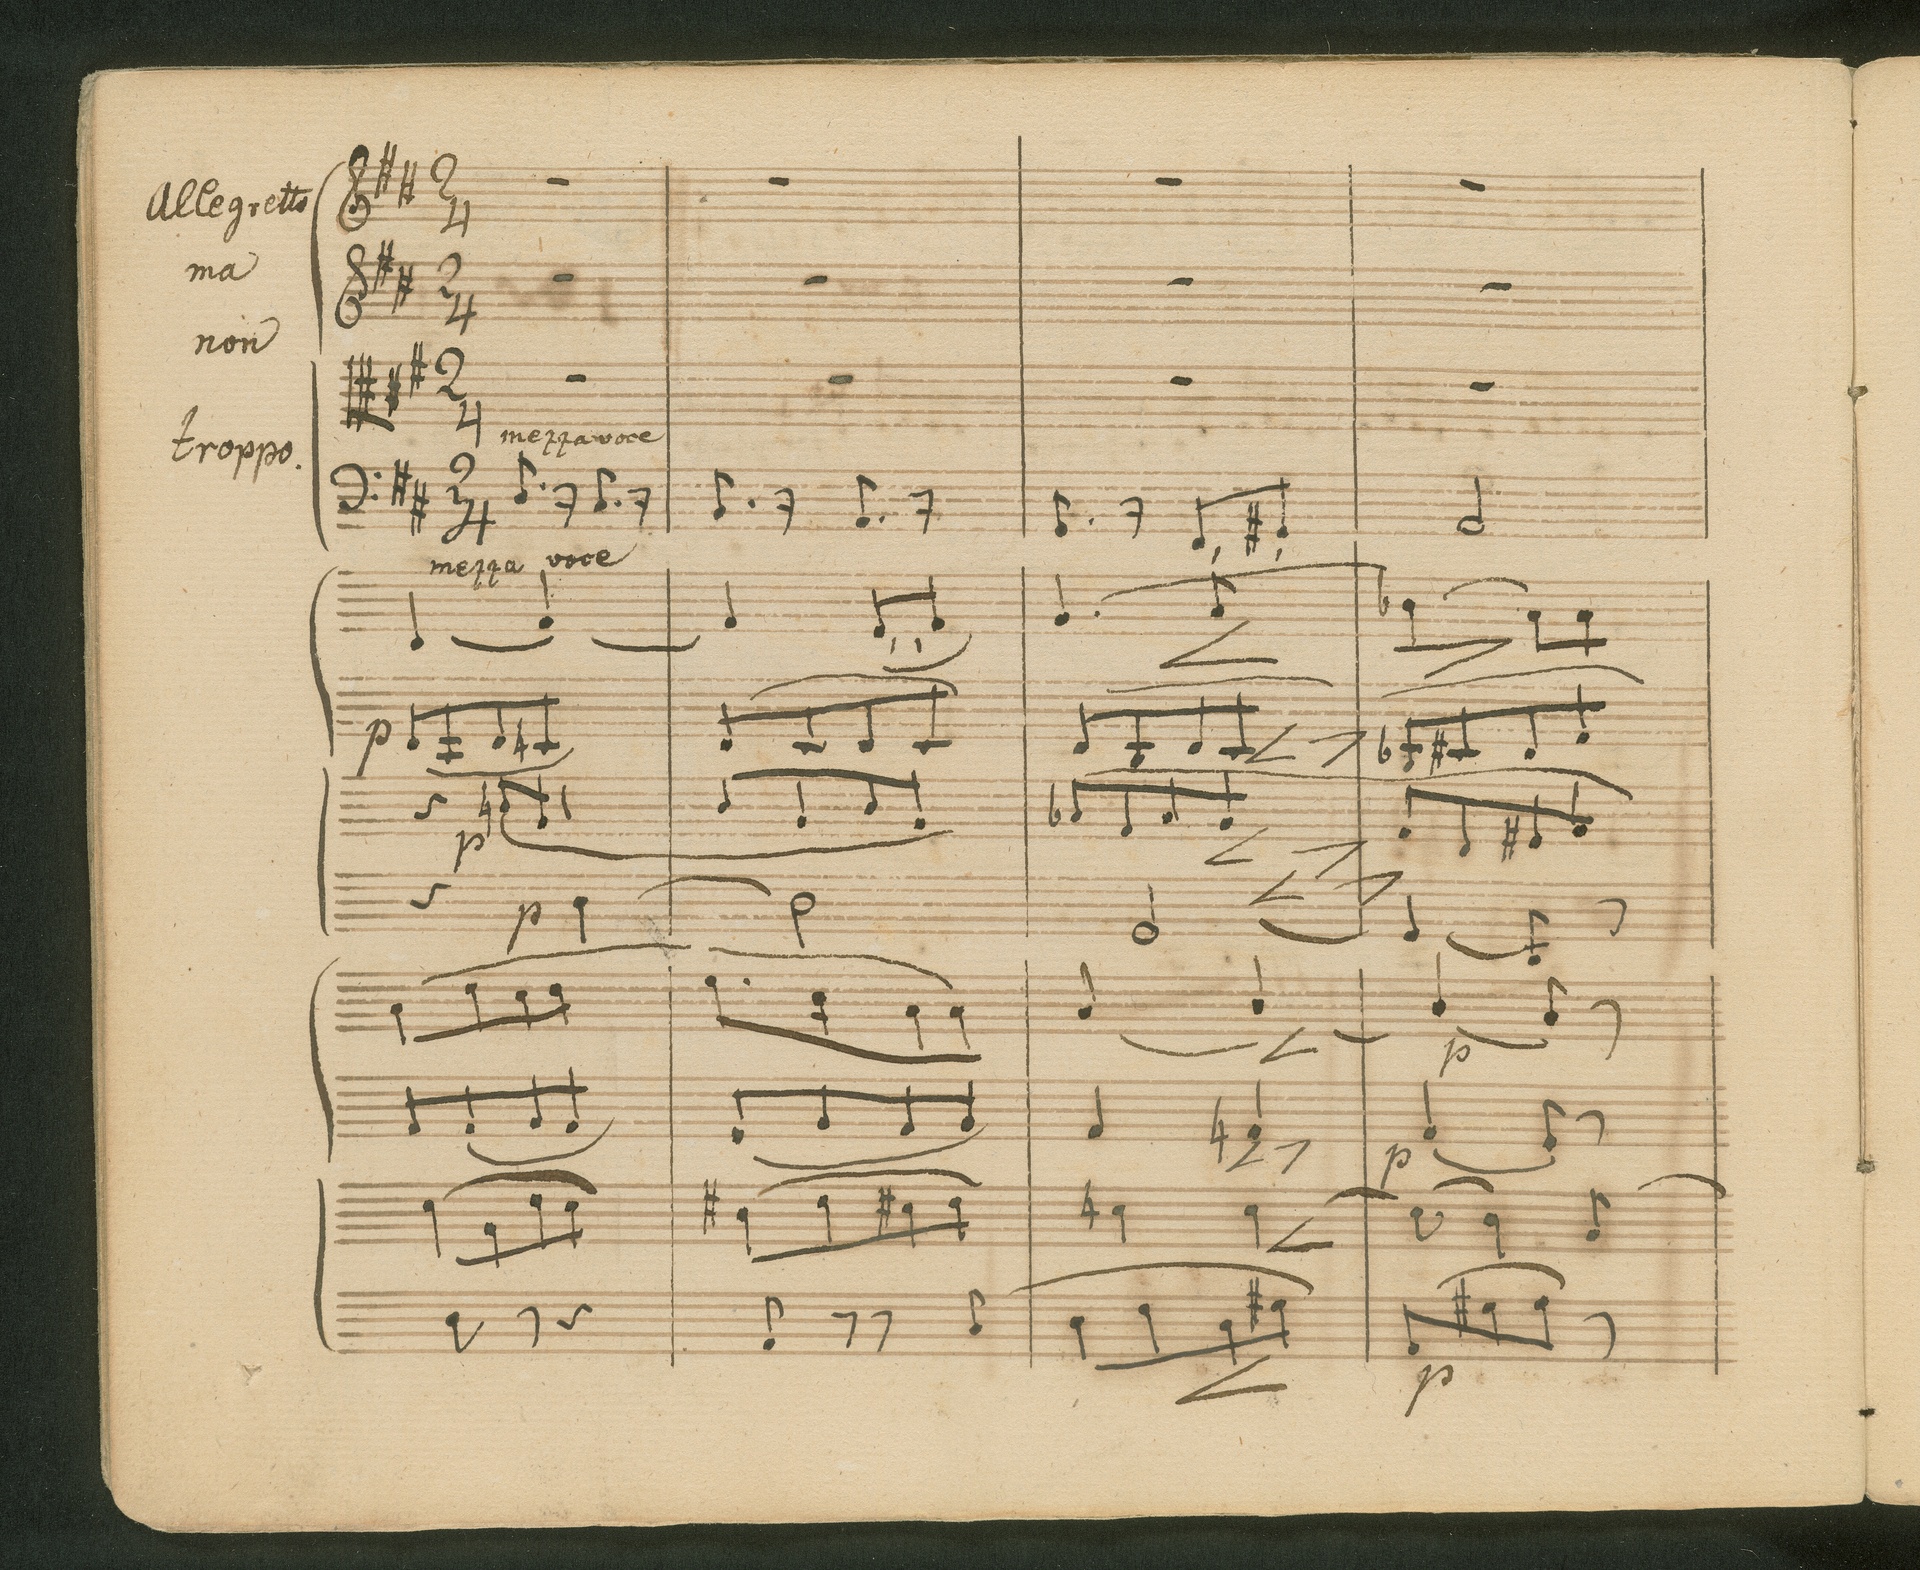 Allegretto
ma
non
troppo.
2
4
2
4
2
4
mezza voce
2
4
mezza voce
p
p
p
p
p
p